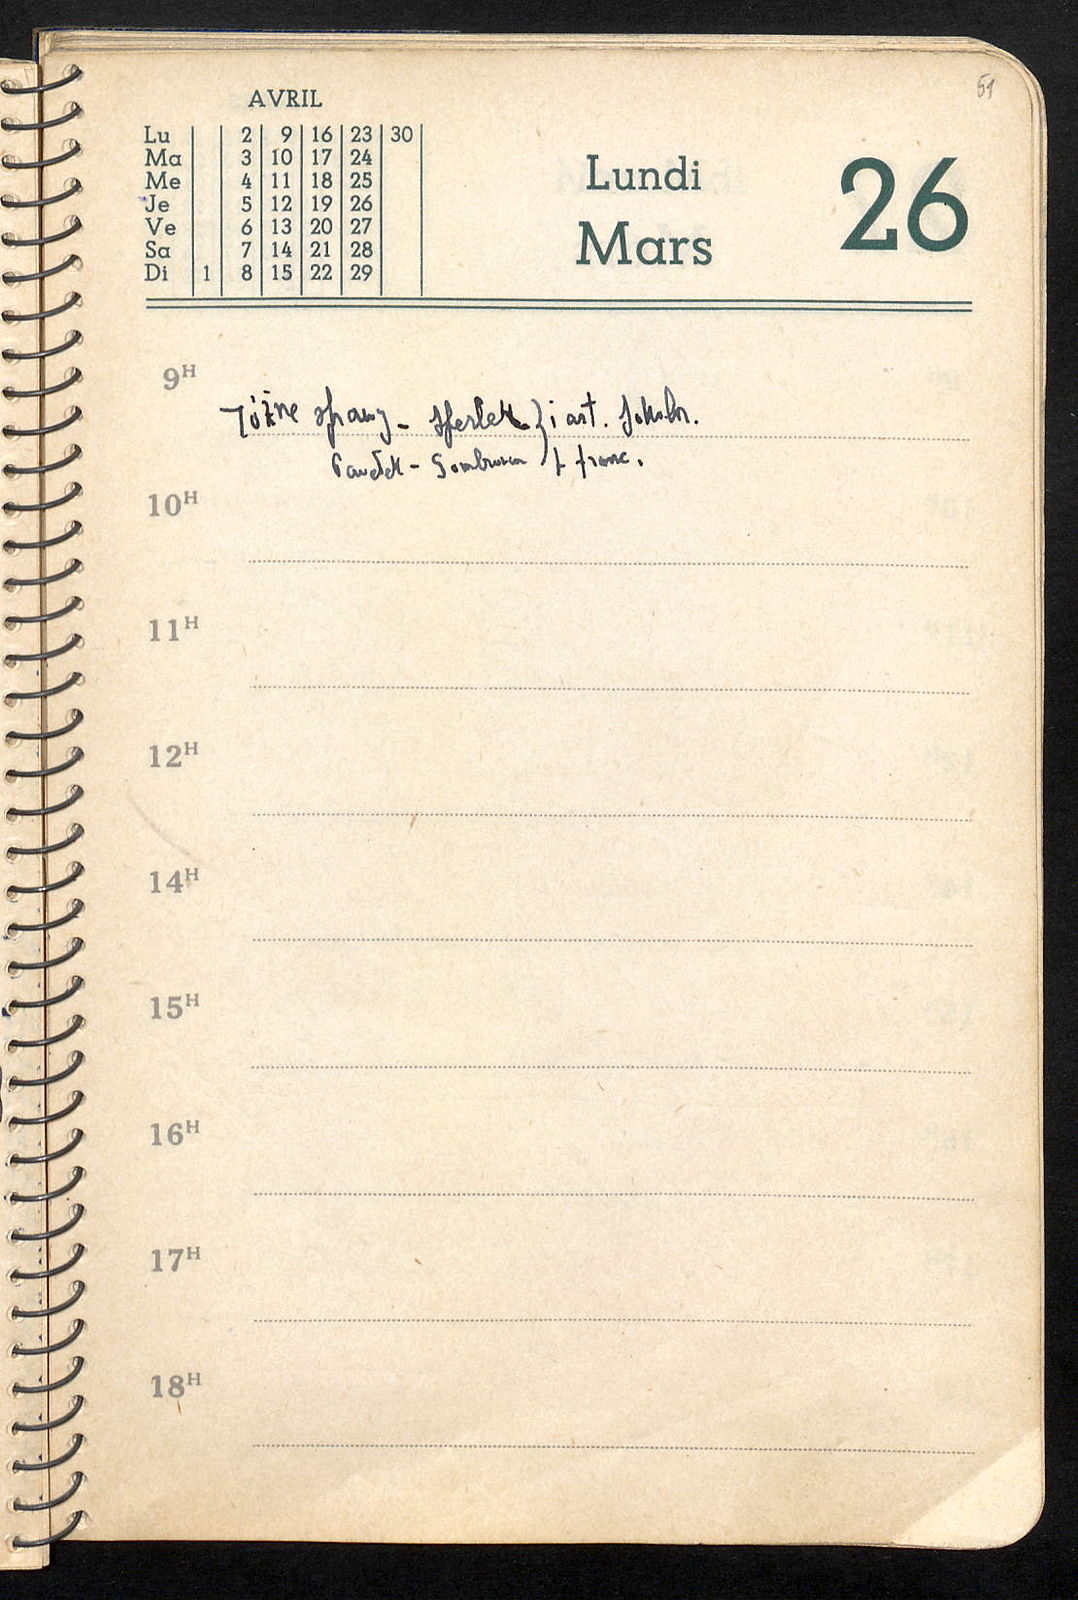 51
AVRIL
Lu 2 9 16 23 30
Ma 3 10 17 24
Me 4 11 18 25
Je 5 12 19 26
Ve 6 13 20 27
Sa 7 14 21 28
Di 1 8 15 22 29
Lundi
Mars
26
9H
różne sprawy - i art.
10H
11H
12H
14H
15H
16H
17H
18H